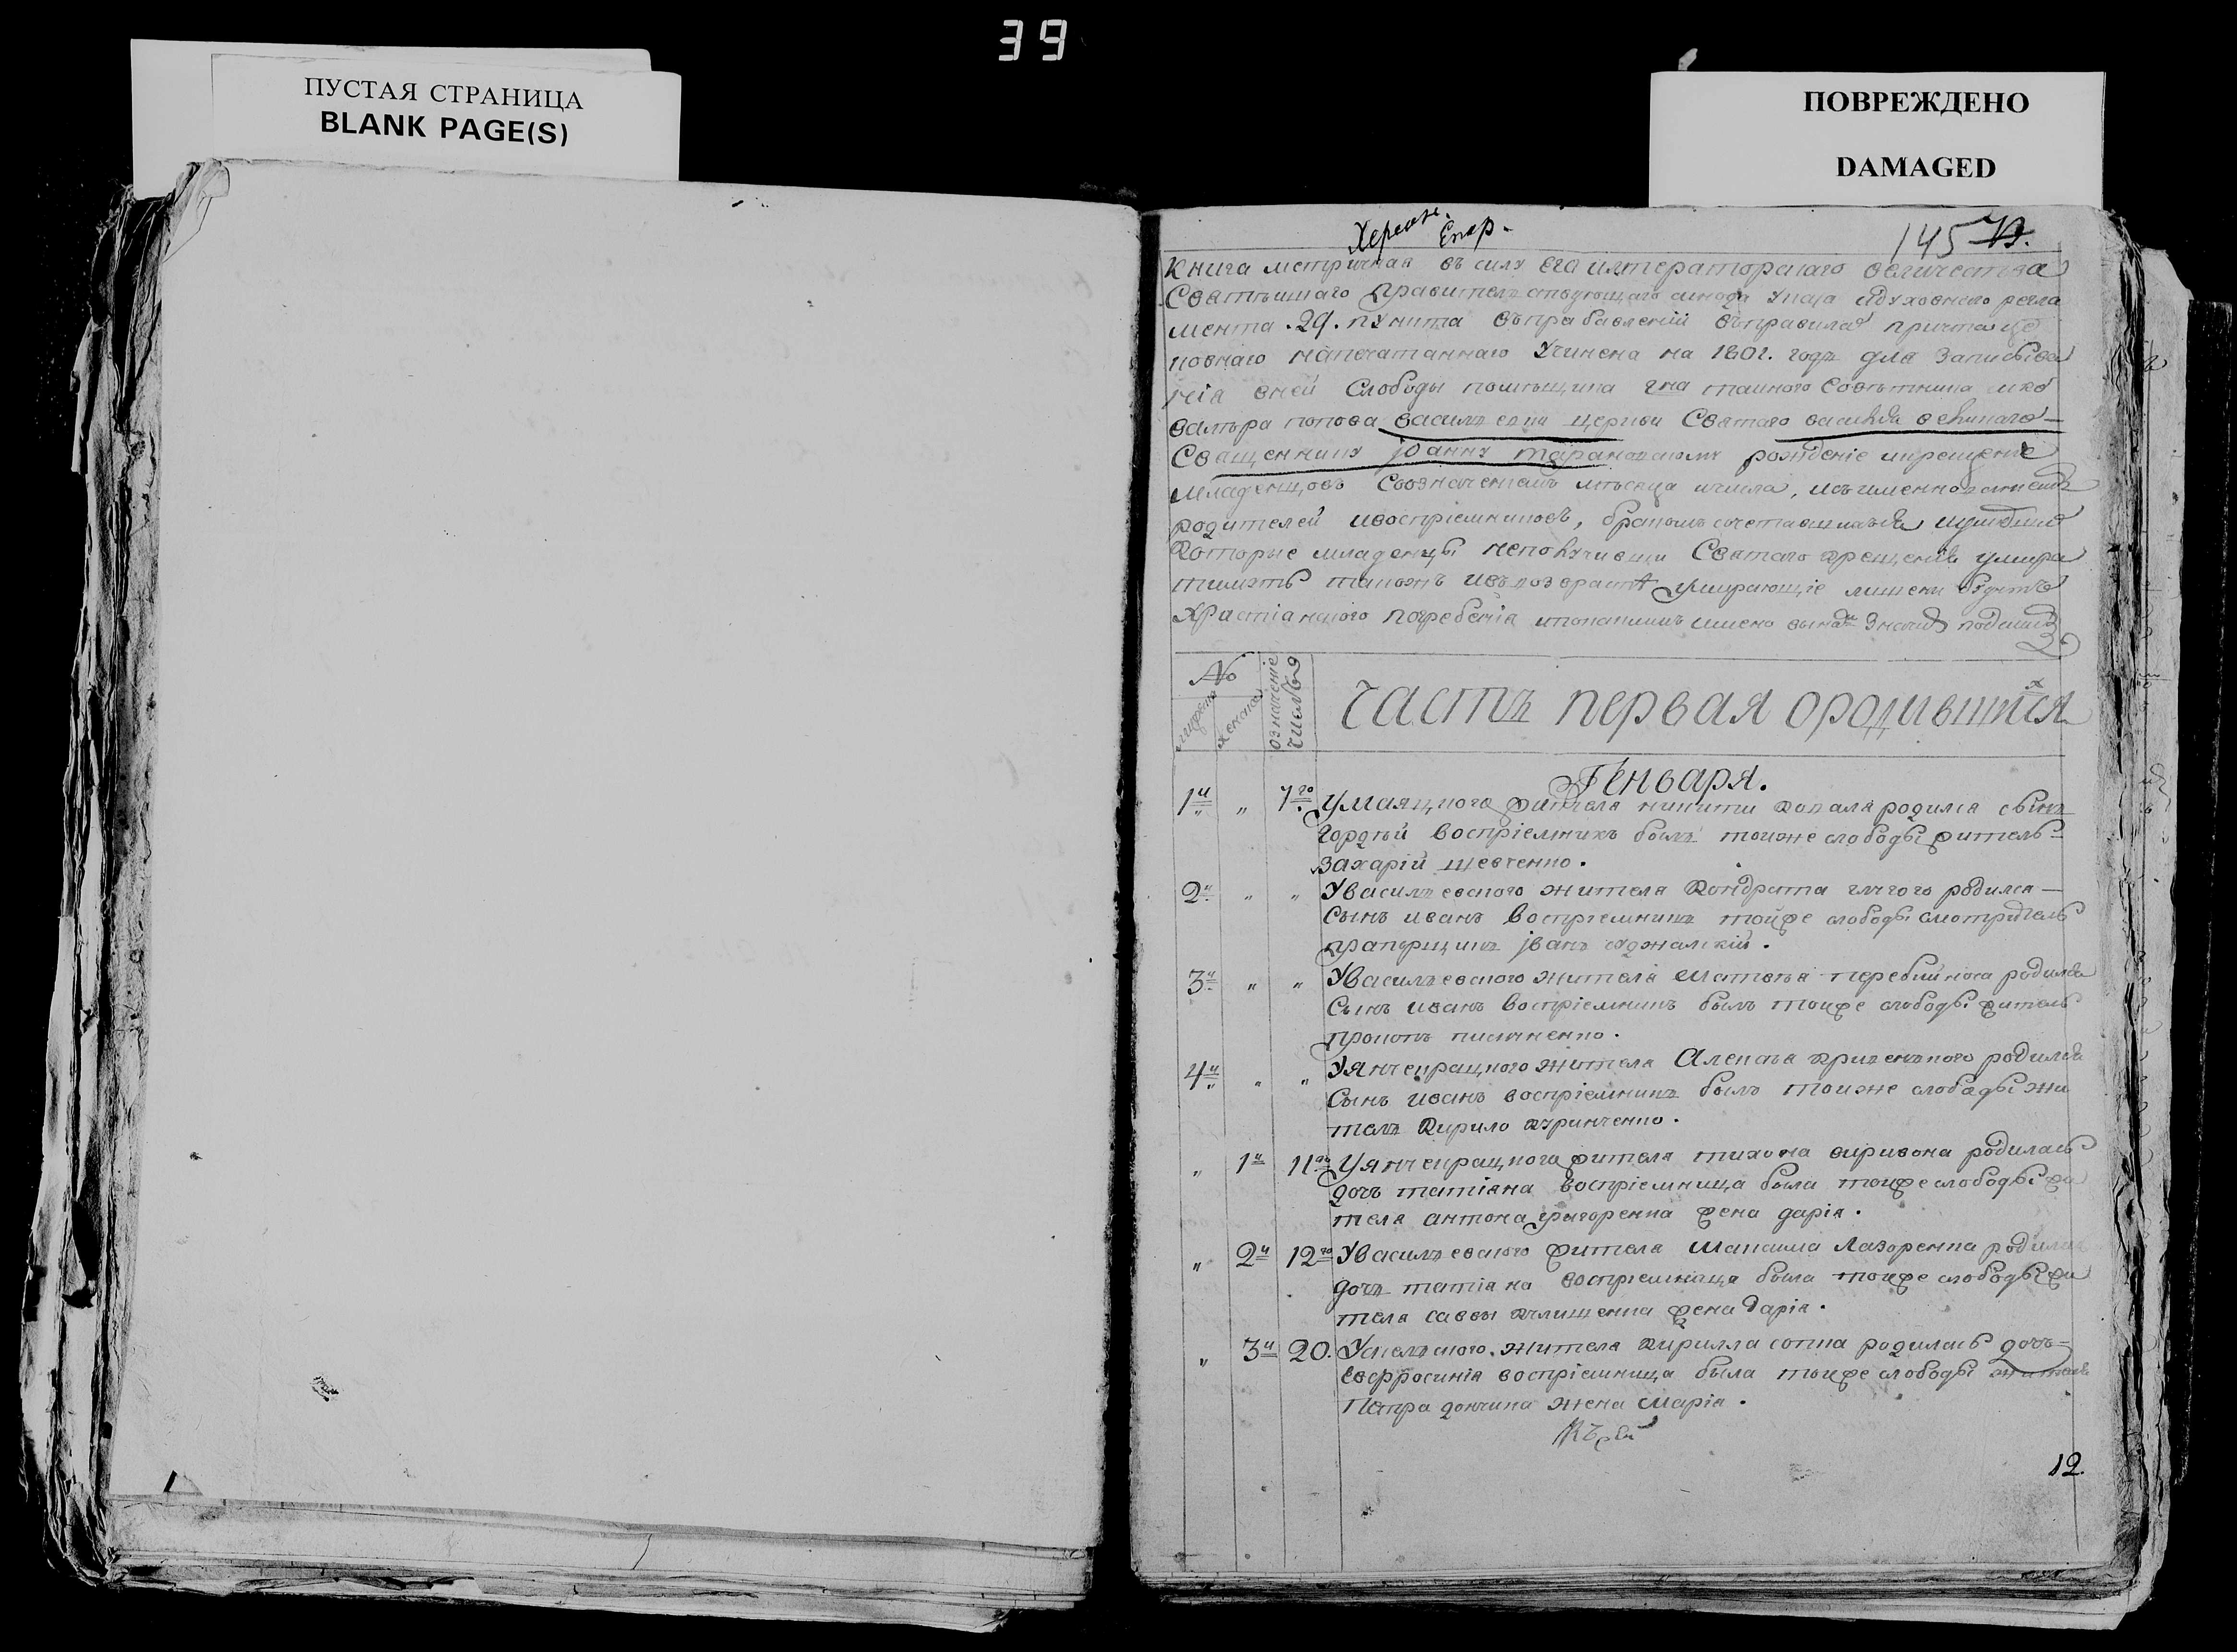 39
ПУСТАЯ СТРАНИЦА
BLANK PAGE(S)
ПОВРЕЖДЕНО
DAMAGED
Херсон. Епар.
145
Книга метричная въ силу его императорскаго величества
Святѣшнаго правителствующаго синода указа идуховнаго регла
мента .29. пункта въпрабавлении въправилаѯ причта це
ковнаго напечатаннаго Учинена на 1801. годъ для записыва
нія вней Слободы помѣщика гна таиного Совѣтника ика
валѣра попова василъевки церкви Святаго василія великаго
Священнику іоанну тарановскому рожденіе икрещение
младенцовъ Свозначениемъ мѣсяца ичисла,
родителей ивоспріемниковъ, бракомъ сочетавшихъся
Которые младенцы неполучивши Святаго крещенія умира
тимутъ такожъ ивъвозрастѣ умирающіе лишени будутъ
Христіанского погребенія имено
№
мужеска
женска
означение
числъ
Часть первая ородившихся
Генваря.
1й „ 7го Умаяцкого жителя никити ковалародился сынъ
Гордѣй воспріемникъ былъ тоиже слободы житель
Захарій шевченко.
2й „ „ Увасилъевского жителя Кондрата родился
Сынъ иванъ воспріемникъ тойже слободы смотритель
прапорщикъ іванъ
3й „ „ Увасилъевского жителя Матвѣя перебийноса родился
Сынъ иванъ воспріемникъ былъ тоиже слободы житель
прокопъ писаненко.
4й „ „ Уянчекрацкого жителя Алексѣя родился
Сынъ иванъ воспріемникъ былъ тоиже слободы жи
телъ Кирило
„ 1й 11го Уянчекрацкого жителя тихона родилась
дочь татіана воспріемница была тоиже слободы жи
теля антона григоренка жена дарія.
„ 2й 12го Увасилъевского жителя Максима Лазоренка родилась
дочъ татіана воспріемница была тоиже слободы жи
теля саввы жена дарія.
„ 3й 20. жителя кирилла сопка родилась дочъ
евфросинія воспріемница была тоиже слободы жителя
Петра дончика жена марія.
12.